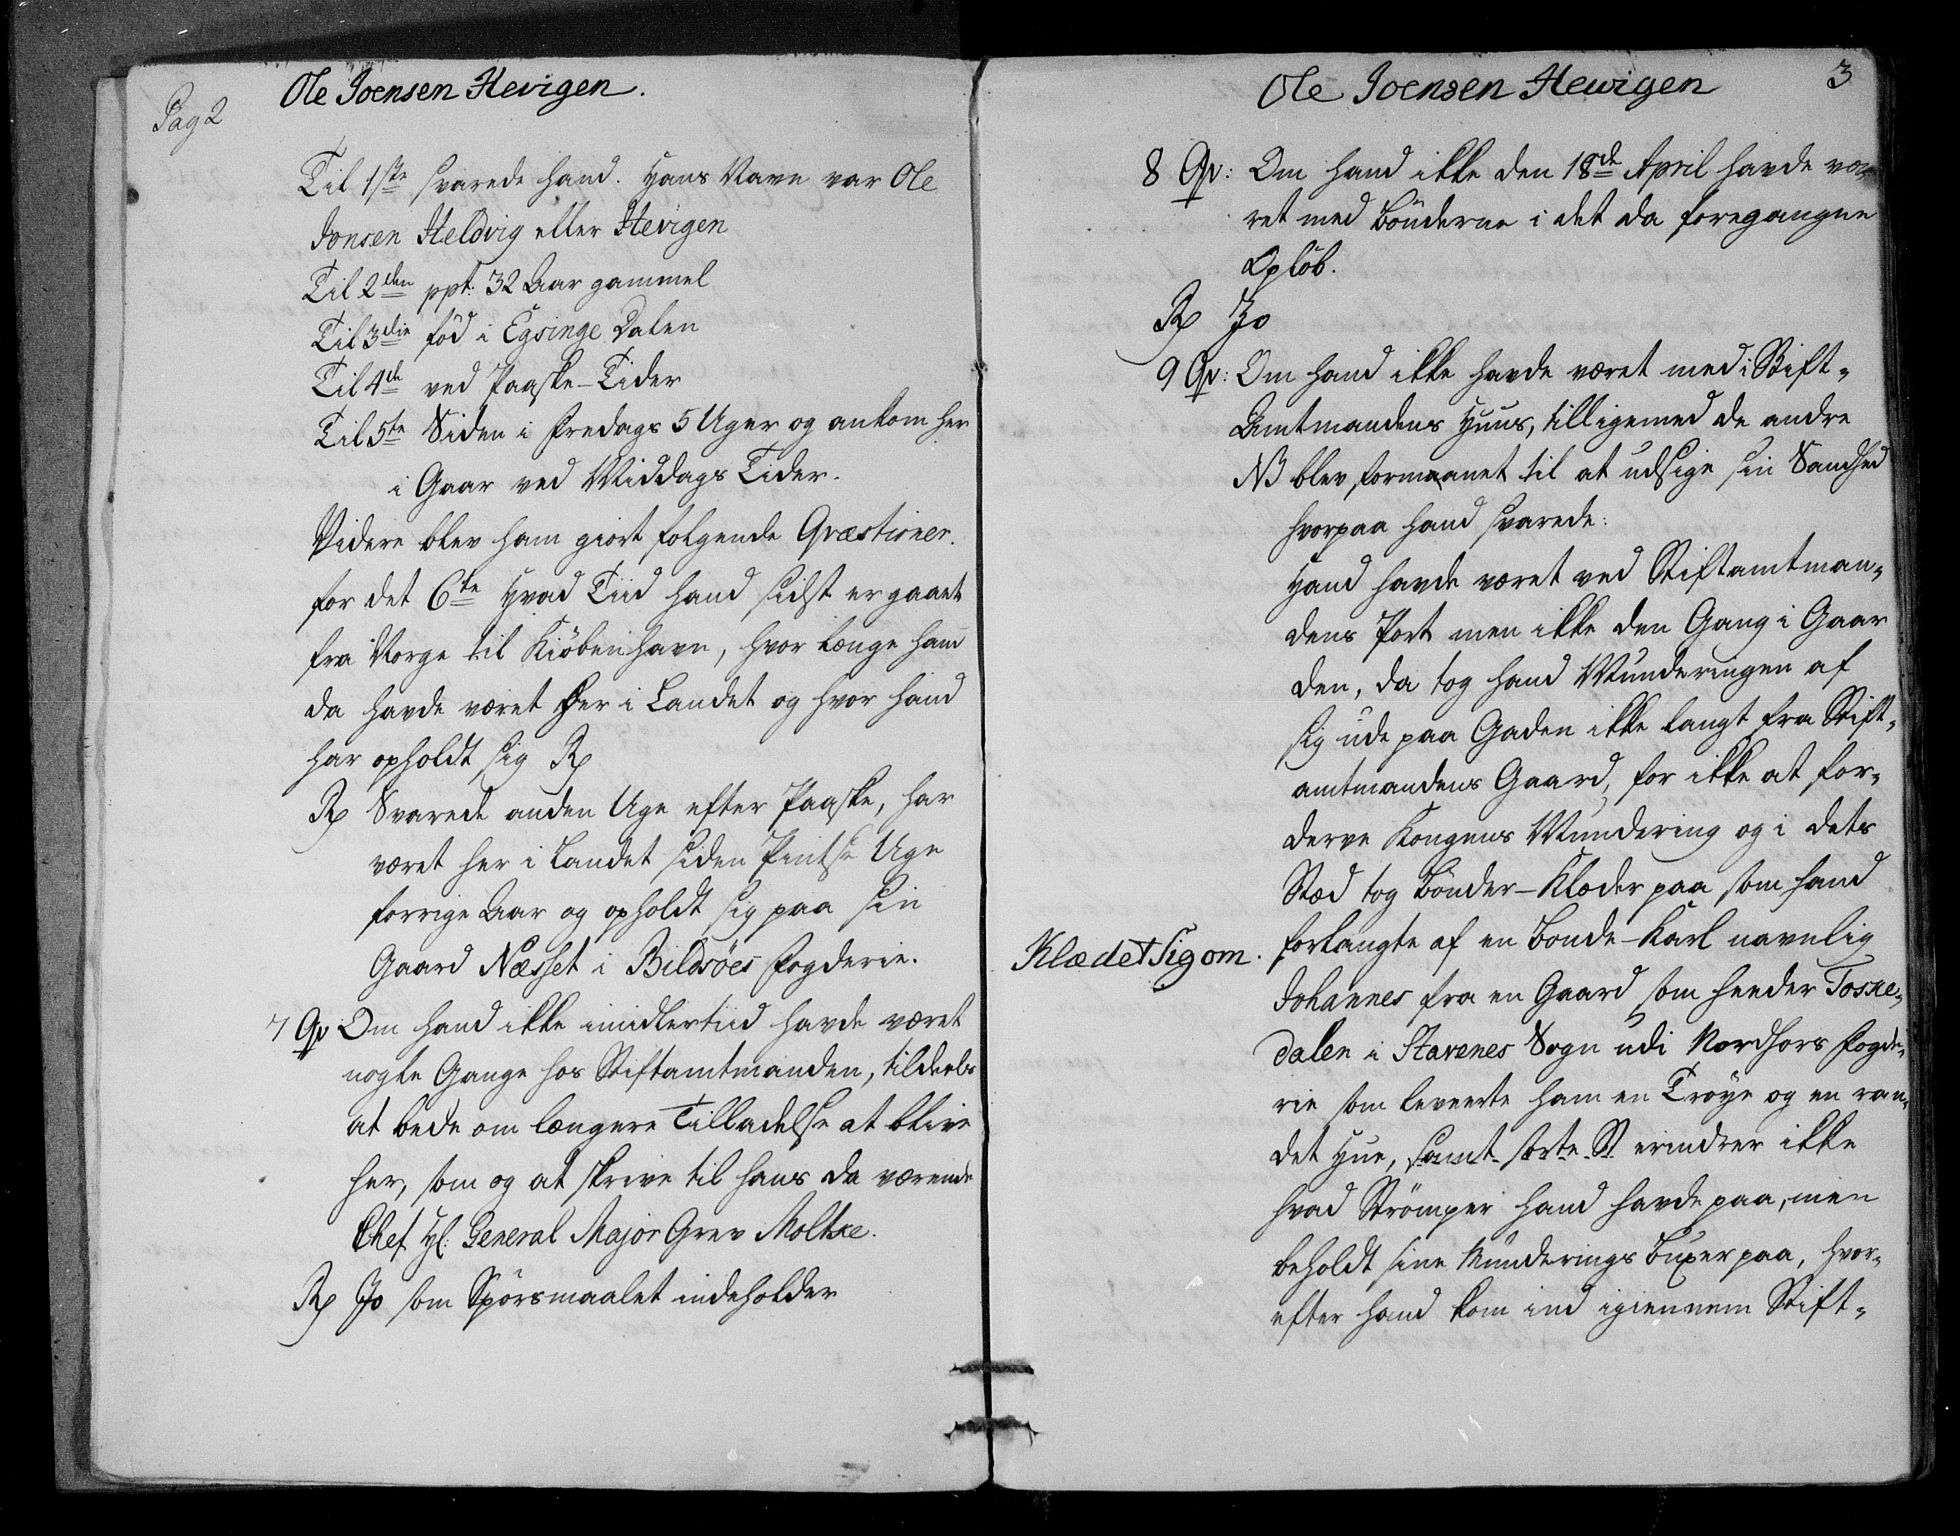 Pag 2
Ole Joensen Hevigen.
Til 1ste svarede hand. Hans Navn var Ole
Jonsen Heldvig eller Hevigen
Til 2den ppt. 32 Aar gammel
Til 3die fød i Egsinge Dalen
Til 4de ved Paaske-Tider
Til 5te Siden i Fredags 5 Uger og ankom her
i Gaar ved Middags Tider.
Videre blev ham giort følgende Qvæstioner.
for det 6te Hvad Tiid hand sidst er gaaet
fra Norge til Kiöbenhavn, hvor længe hand
da havde været her i Landet og hvor hand
har opholdt sig Rp
Rp Svarede anden Uge efter Paaske, har
været her i Landet siden Pintse Uge
forrige Aar og opholdt sig paa sin
Gaard Næsset i Bildsöes Fogderie.
7 Qv Om hand ikke imidlertiid havde været
nogle Gange hos Stiftamtmanden, tildeels
at bede om længere Tilladelse at blive
her, som og at skrive til hans da værende
Chef Hl: General Major Grev Moltke.
Rp Jo som Spörsmaalet indeholder
Ole Joensen Hewigen
3
8 Qv: Om hand ikke den 18de April havde væ-
ret med Bönderne i det da foregangne
Opløb.
Rp Jo
9 Qv: Om hand ikke havde været med i Stift-
Amtmandens Huus, tilligemed de andre
NB blev formaanet til at udsige sin Sandhed
hvorpaa hand svarede:
Hand havde været ved Stiftamtman-
dens Port men ikke den Gang i Gaar
den, da tog hand Munderingen af
sig ude paa Gaden ikke langt fra Stift-
amtmandens Gaard, for ikke at for-
derve Kongens Mundering og i dets
Stæd tog Bönder-Klæder paa som hand
forlangte af en Bonde-Karl navnlig
Klædet sig om.
Johannes fra en Gaard som heeder Toske-
dalen i Stavenes Sogn udi Nordhors Fogde-
rie som leveerte ham en Tröye og en ran-
det Hue, samt sorte St erindrer ikke
hvad Strömper hand havde paa, men
beholdt sine Munderings Buxer paa, hvor-
efter hand kom ind igiennem Stift-